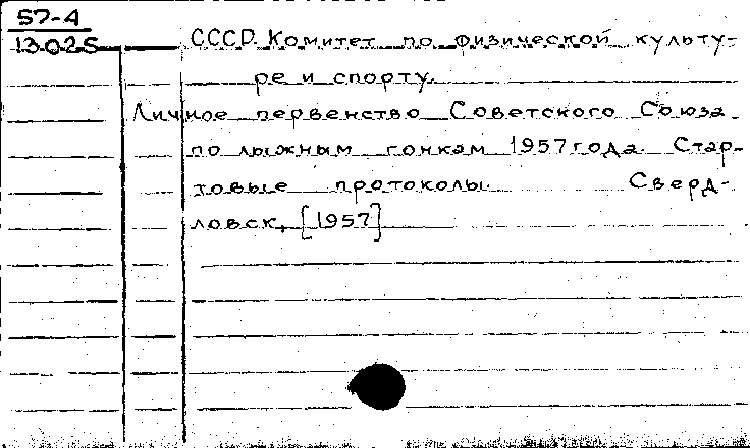 57-4
13025
СССР. Комитет по физической культу-
ре и спорту.
Личное первенство Советского Союза
по лыжным гонкам 1957 года. Стар-
товые протоколы. Сверд-
ловск, [1957]